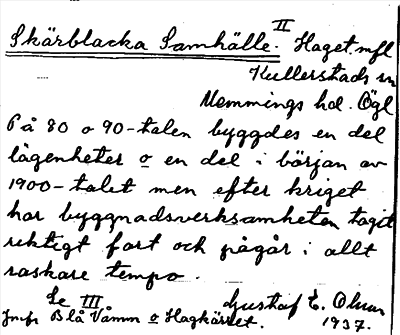 II
Skärblacka Samhälle. Haget. mfl
Kullerstads sn
Memmings hd. Ögl
På 80 o 90-talen byggdes en del
lägenheter o en del i början av
1900-talet men efter kriget
har byggnadsverksamheten tagit
riktigt fart och pågår i allt
raskare tempo.
Se III Gustaf E.
Jmfr Blå Vämm o Hagkärret. 1937.